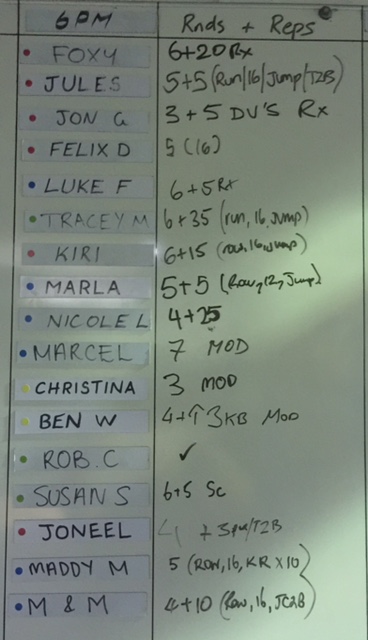 6PM Rnds + Reps
FOXY 6+20 Rx
JULES 5+5 (Run/16/Jump/T2B)
JON G 3+5 DU'S Rx
FELIX D 5 (16)
LUKE F 6+5 Rx
TRACEY M 6+35 (run, 16, Jump)
KIRI 6+15 (row, 16, Jump)
MARLA 5+5 (Row, 12, Jump)
NICOLE L 4+25
MARCEL 7 MOD
CHRISTINA 3 MOD
BEN W 4+ 3KB MOD
ROB.C ✓
SUSAN S 6+5 Sc
JONEEL 4 + T2B
MADDY M 5 (ROW, 16, KR x10)
M & M 4+10 (Row, 16,